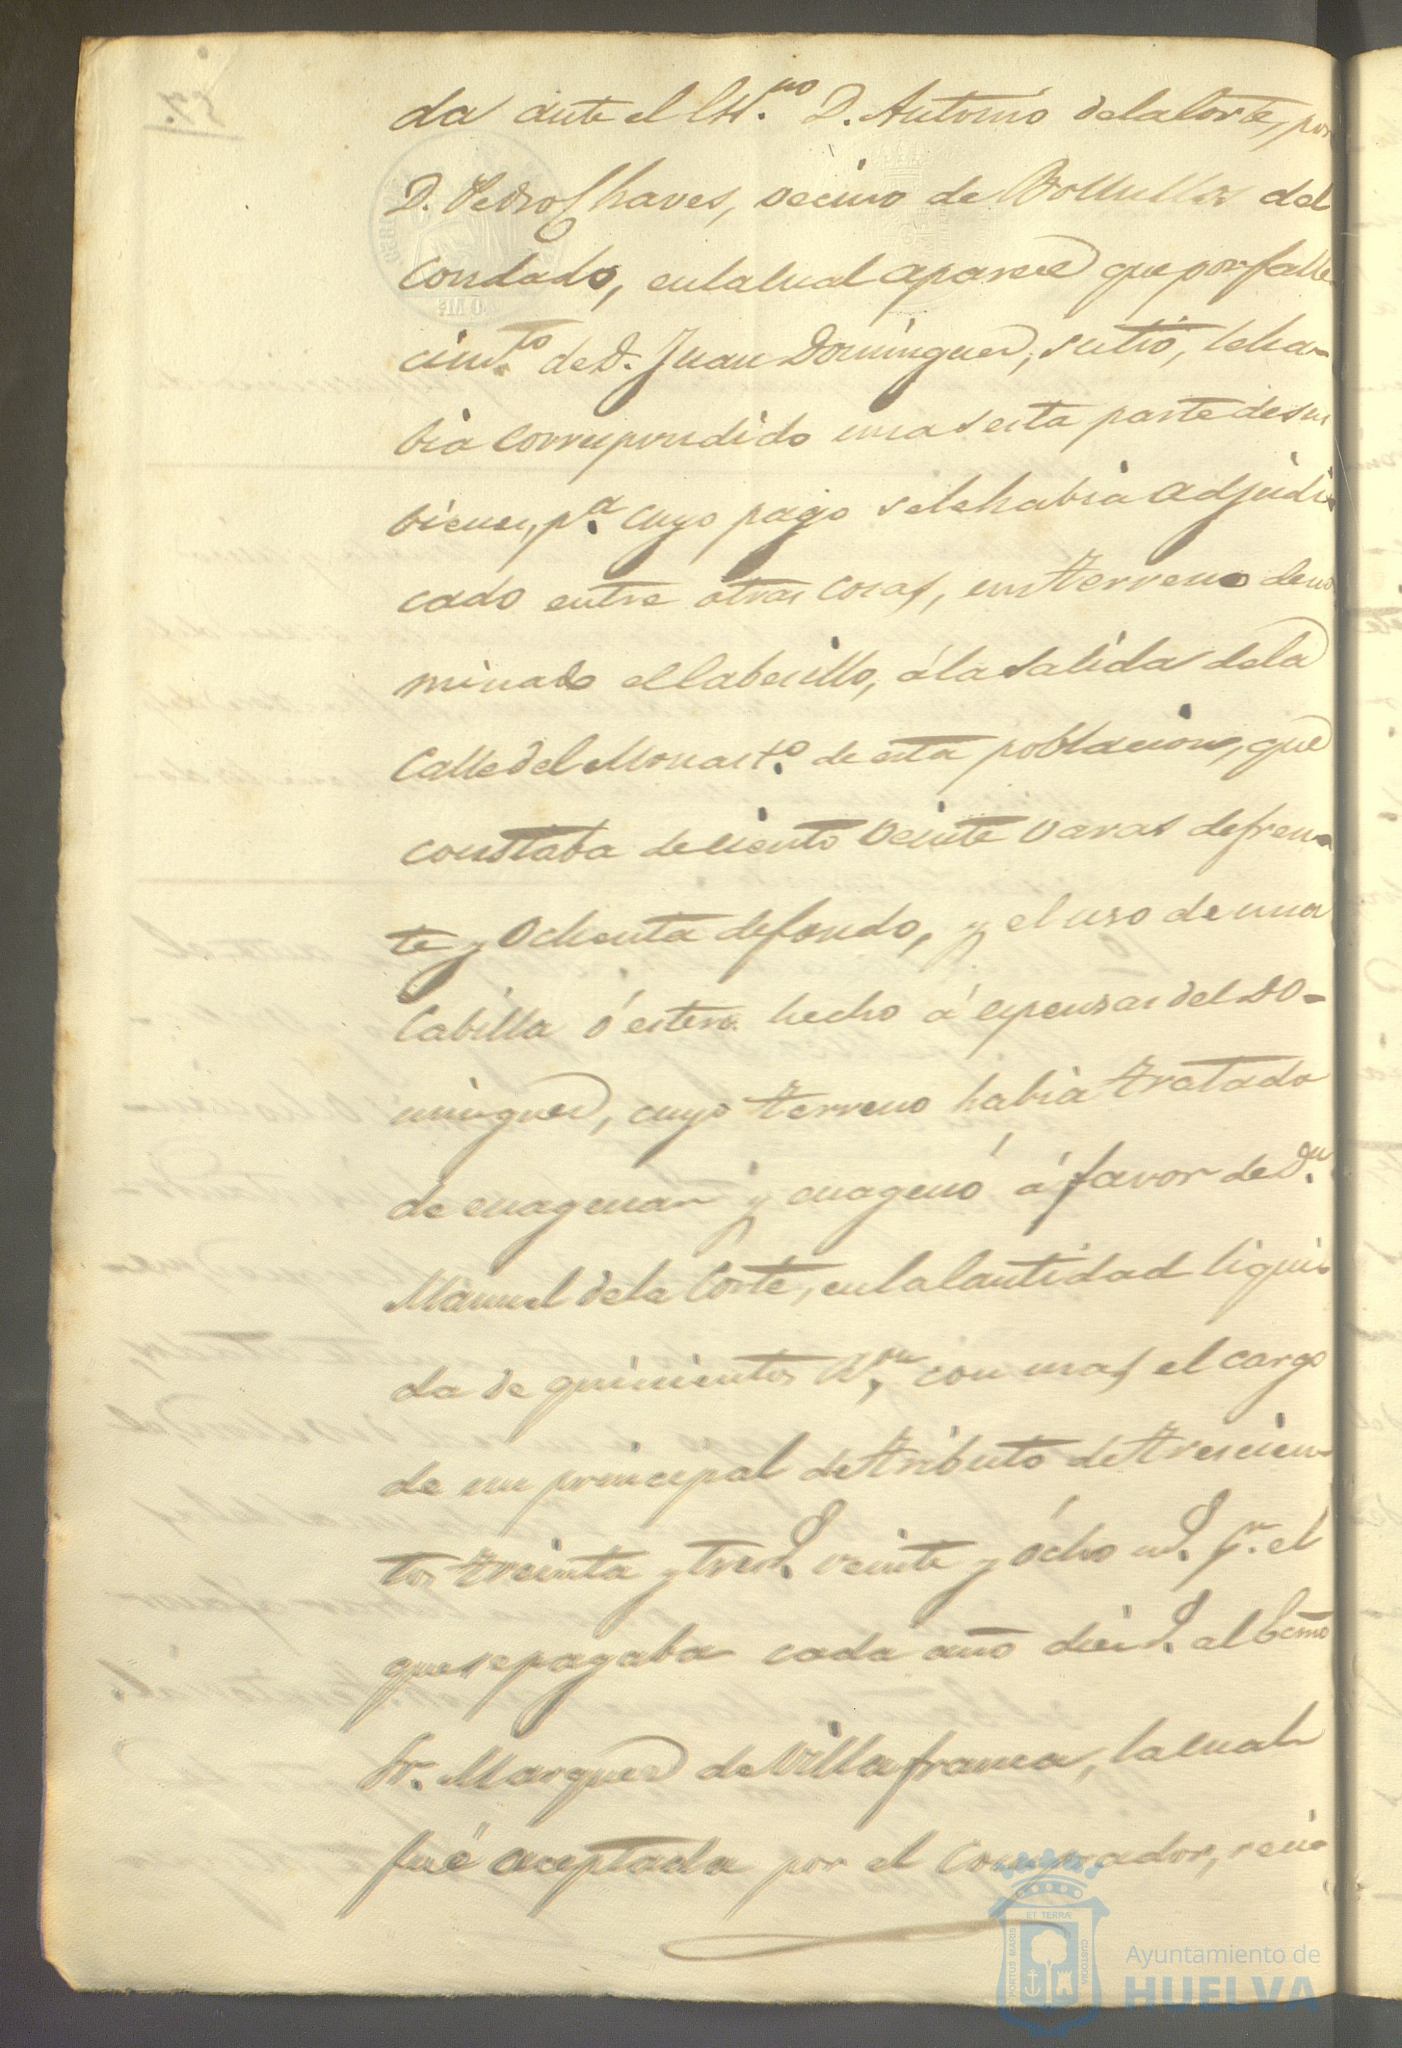 da ante el Es.no D. Antonio dela Corte, por
D. Pedro Chaves, vecino de Bollullos del
Condado, enla cual aparece que por falle
cim.to de D. Juan Dominguez, su tio, le ha-
bia correspondido una sesta parte de sus
bienes, p.a cuyo pago se le habia adjudi-
cado entre otras cosas, un terreno deno
minado el Cabecillo, á la salida dela
Calle del Monast.o de esta poblacion, que
constaba de ciento veinte varas de fren-
te y ochenta de fondo, y el uso de una
Cabilla ó estero hecho á espensas del Do-
minguez, cuyo terreno habia tratado
de enagenar y enagenó á favor de D.n
Manuel dela Corte, en la cantidad liqui-
da de quinientos con mas el cargo
de un principal de tributo de trescien-
tos treinta y tres veinte y ócho p.r el
que se pagaba cada año diez al Ecmo
Sr. Marques de Villafranca, la cual
fué aceptada por el Comprador, reci-
PORTUS MARIS ET TERRÆ CUSTODIA
Ayuntamiento de
HUELVA